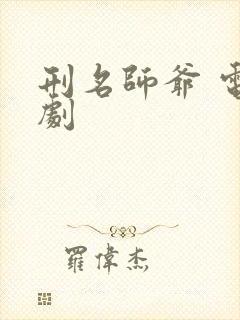 刑名師爺 電
劇
羅偉杰